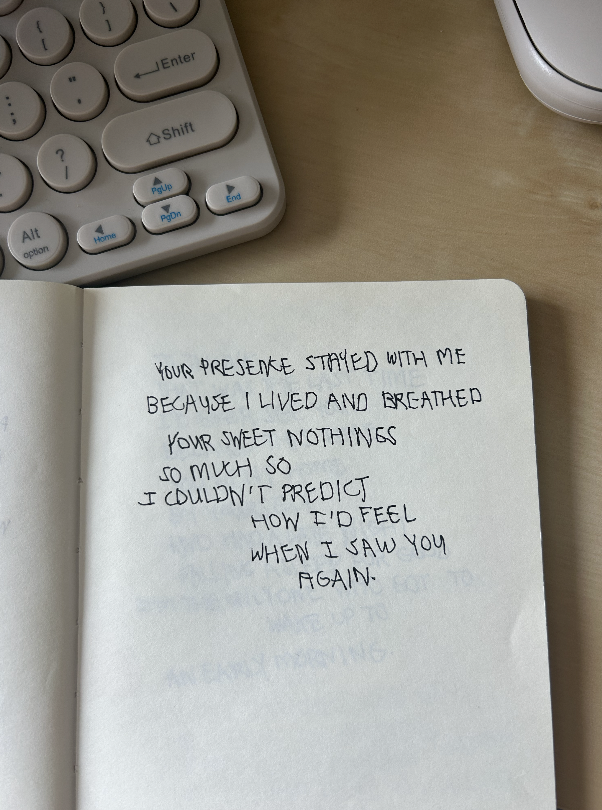 }
]
{
[
\
"
'
Enter
:
;
Shift
?
/
PgUp
Alt
option
Home
PgDn
End
YOUR PRESENCE STAYED WITH ME
BECAUSE I LIVED AND BREATHED
YOUR SWEET NOTHINGS
SO MUCH SO
I COULDN'T PREDICT
HOW I'D FEEL
WHEN I SAW YOU
AGAIN.